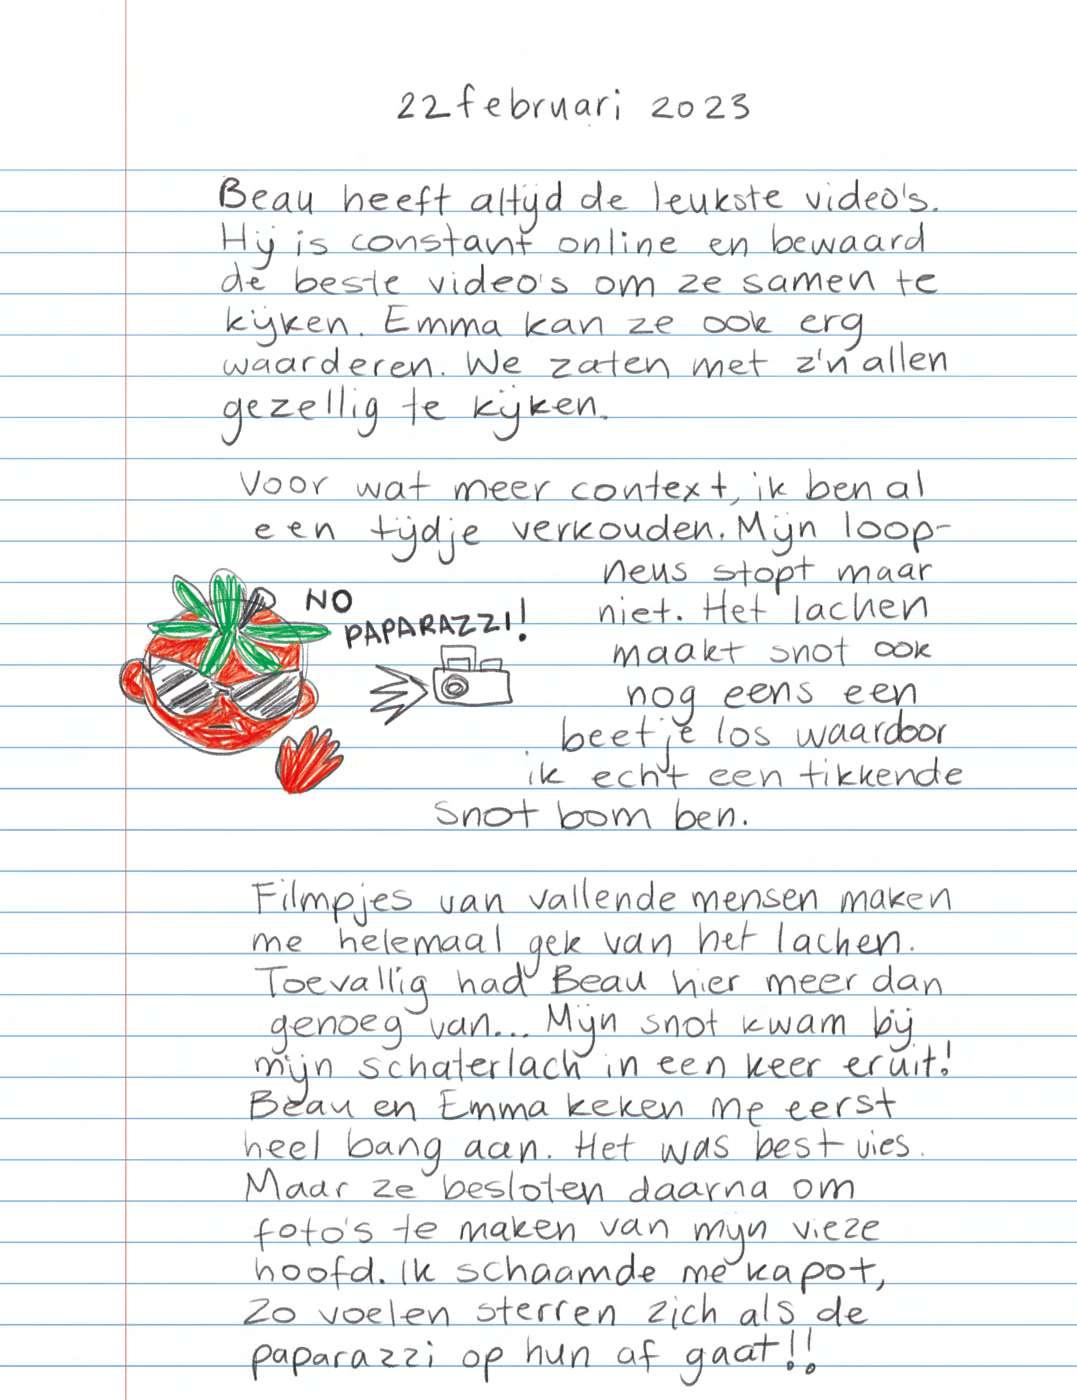 22 februari 2023
Beau heeft altijd de leukste video's.
Hij is constant online en bewaard
de beste video's om ze samen te
kijken. Emma kan ze ook erg
waarderen. We zaten met z'n allen
gezellig te kijken.
Voor wat meer context, ik ben al
een tijdje verkouden. Mijn loop-
neus stopt maar
niet. Het lachen
maakt snot ook
nog eens een
beetje los waardoor
ik echt een tikkende
snot bom ben.
NO
PAPARAZZI!
Filmpjes van vallende mensen maken
me helemaal gek van het lachen.
Toevallig had Beau hier meer dan
genoeg van... Mijn snot kwam bij
mijn schaterlach in een keer eruit!
Beau en Emma keken me eerst
heel bang aan. Het was best vies.
Maar ze besloten daarna om
foto's te maken van mijn vieze
hoofd. Ik schaamde me kapot,
Zo voelen sterren zich als de
paparazzi op hun af gaat!!